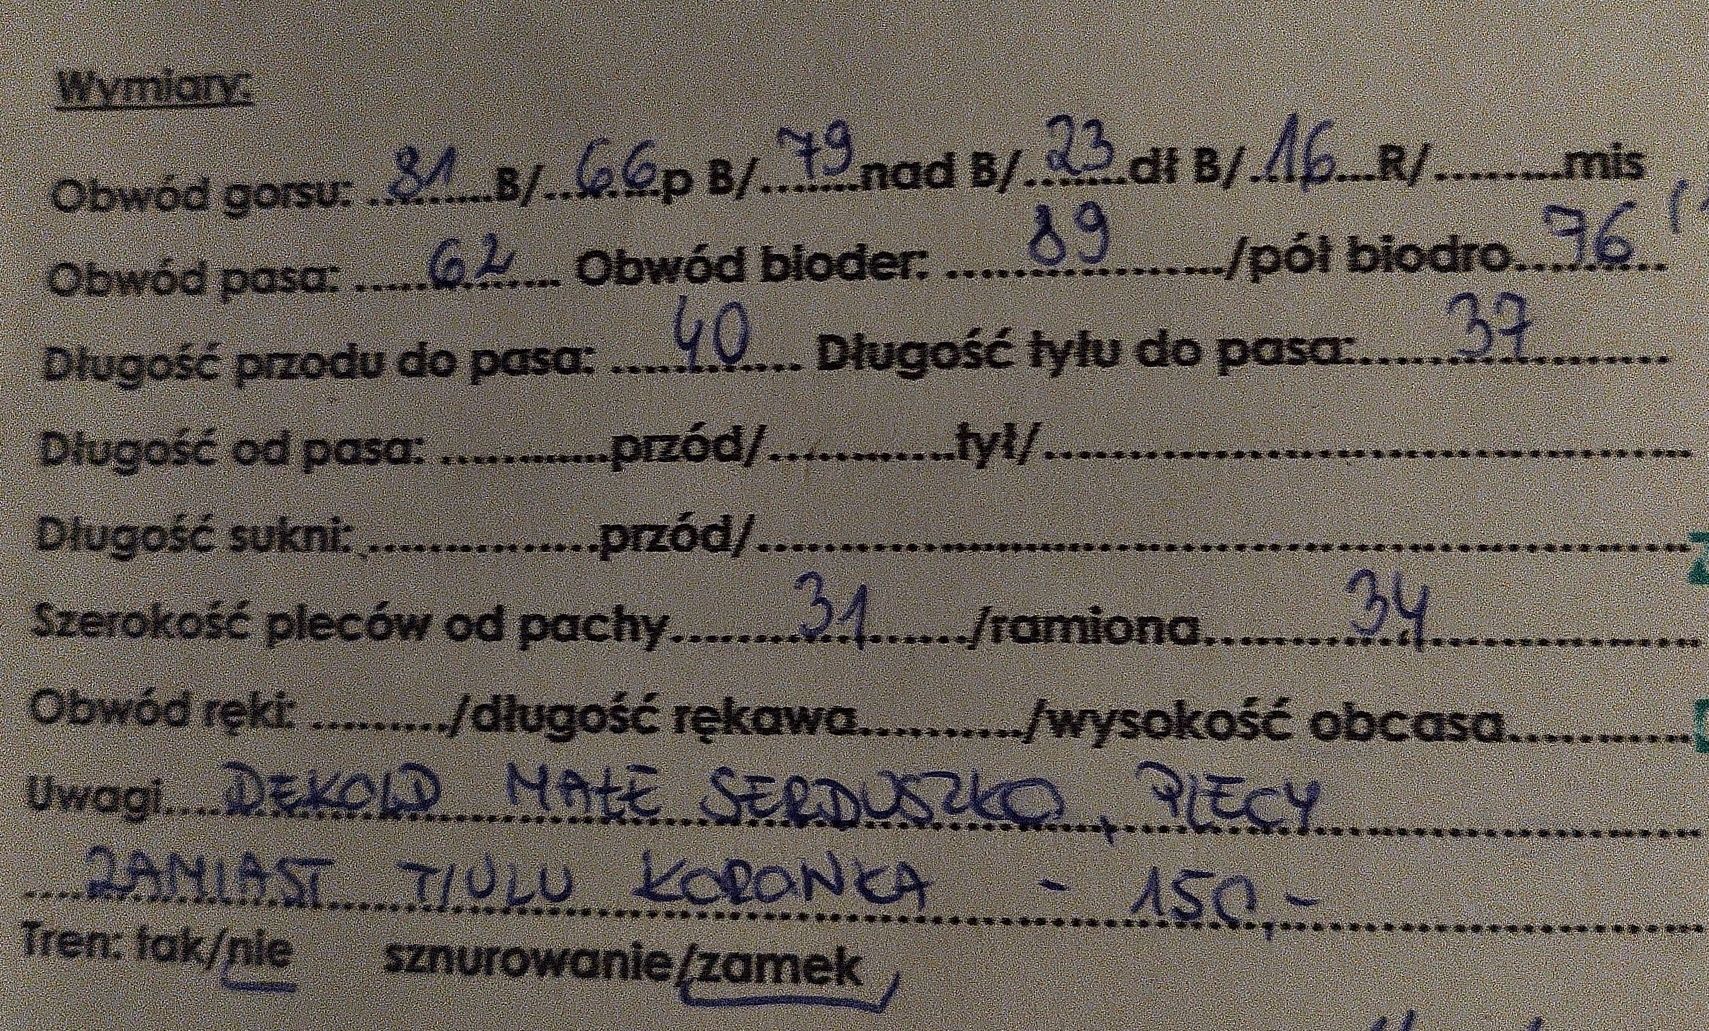 Wymiary:
Obwód gorsu: 81 B/ 66 p B/ 79 nad B/ 23 dł B/ 16 R/ ......... mis
Obwód pasa: 62 Obwód bioder: 89 /pół biodro 76
Długość przodu do pasa: 40 Długość tyłu do pasa: 37
Długość od pasa: ............ przód/ ............. tył/ ............................................
Długość sukni: ................ przód/ ................................................................
Szerokość pleców od pachy 31 /ramiona 34
Obwód ręki: ........./długość rękawa.........../wysokość obcasa.............
Uwagi DEKOLD MAŁE SERDUSZKO, PLECY
ZAMIAST TIULU KORONKA - 150,-
Tren: tak/nie sznurowanie/zamek